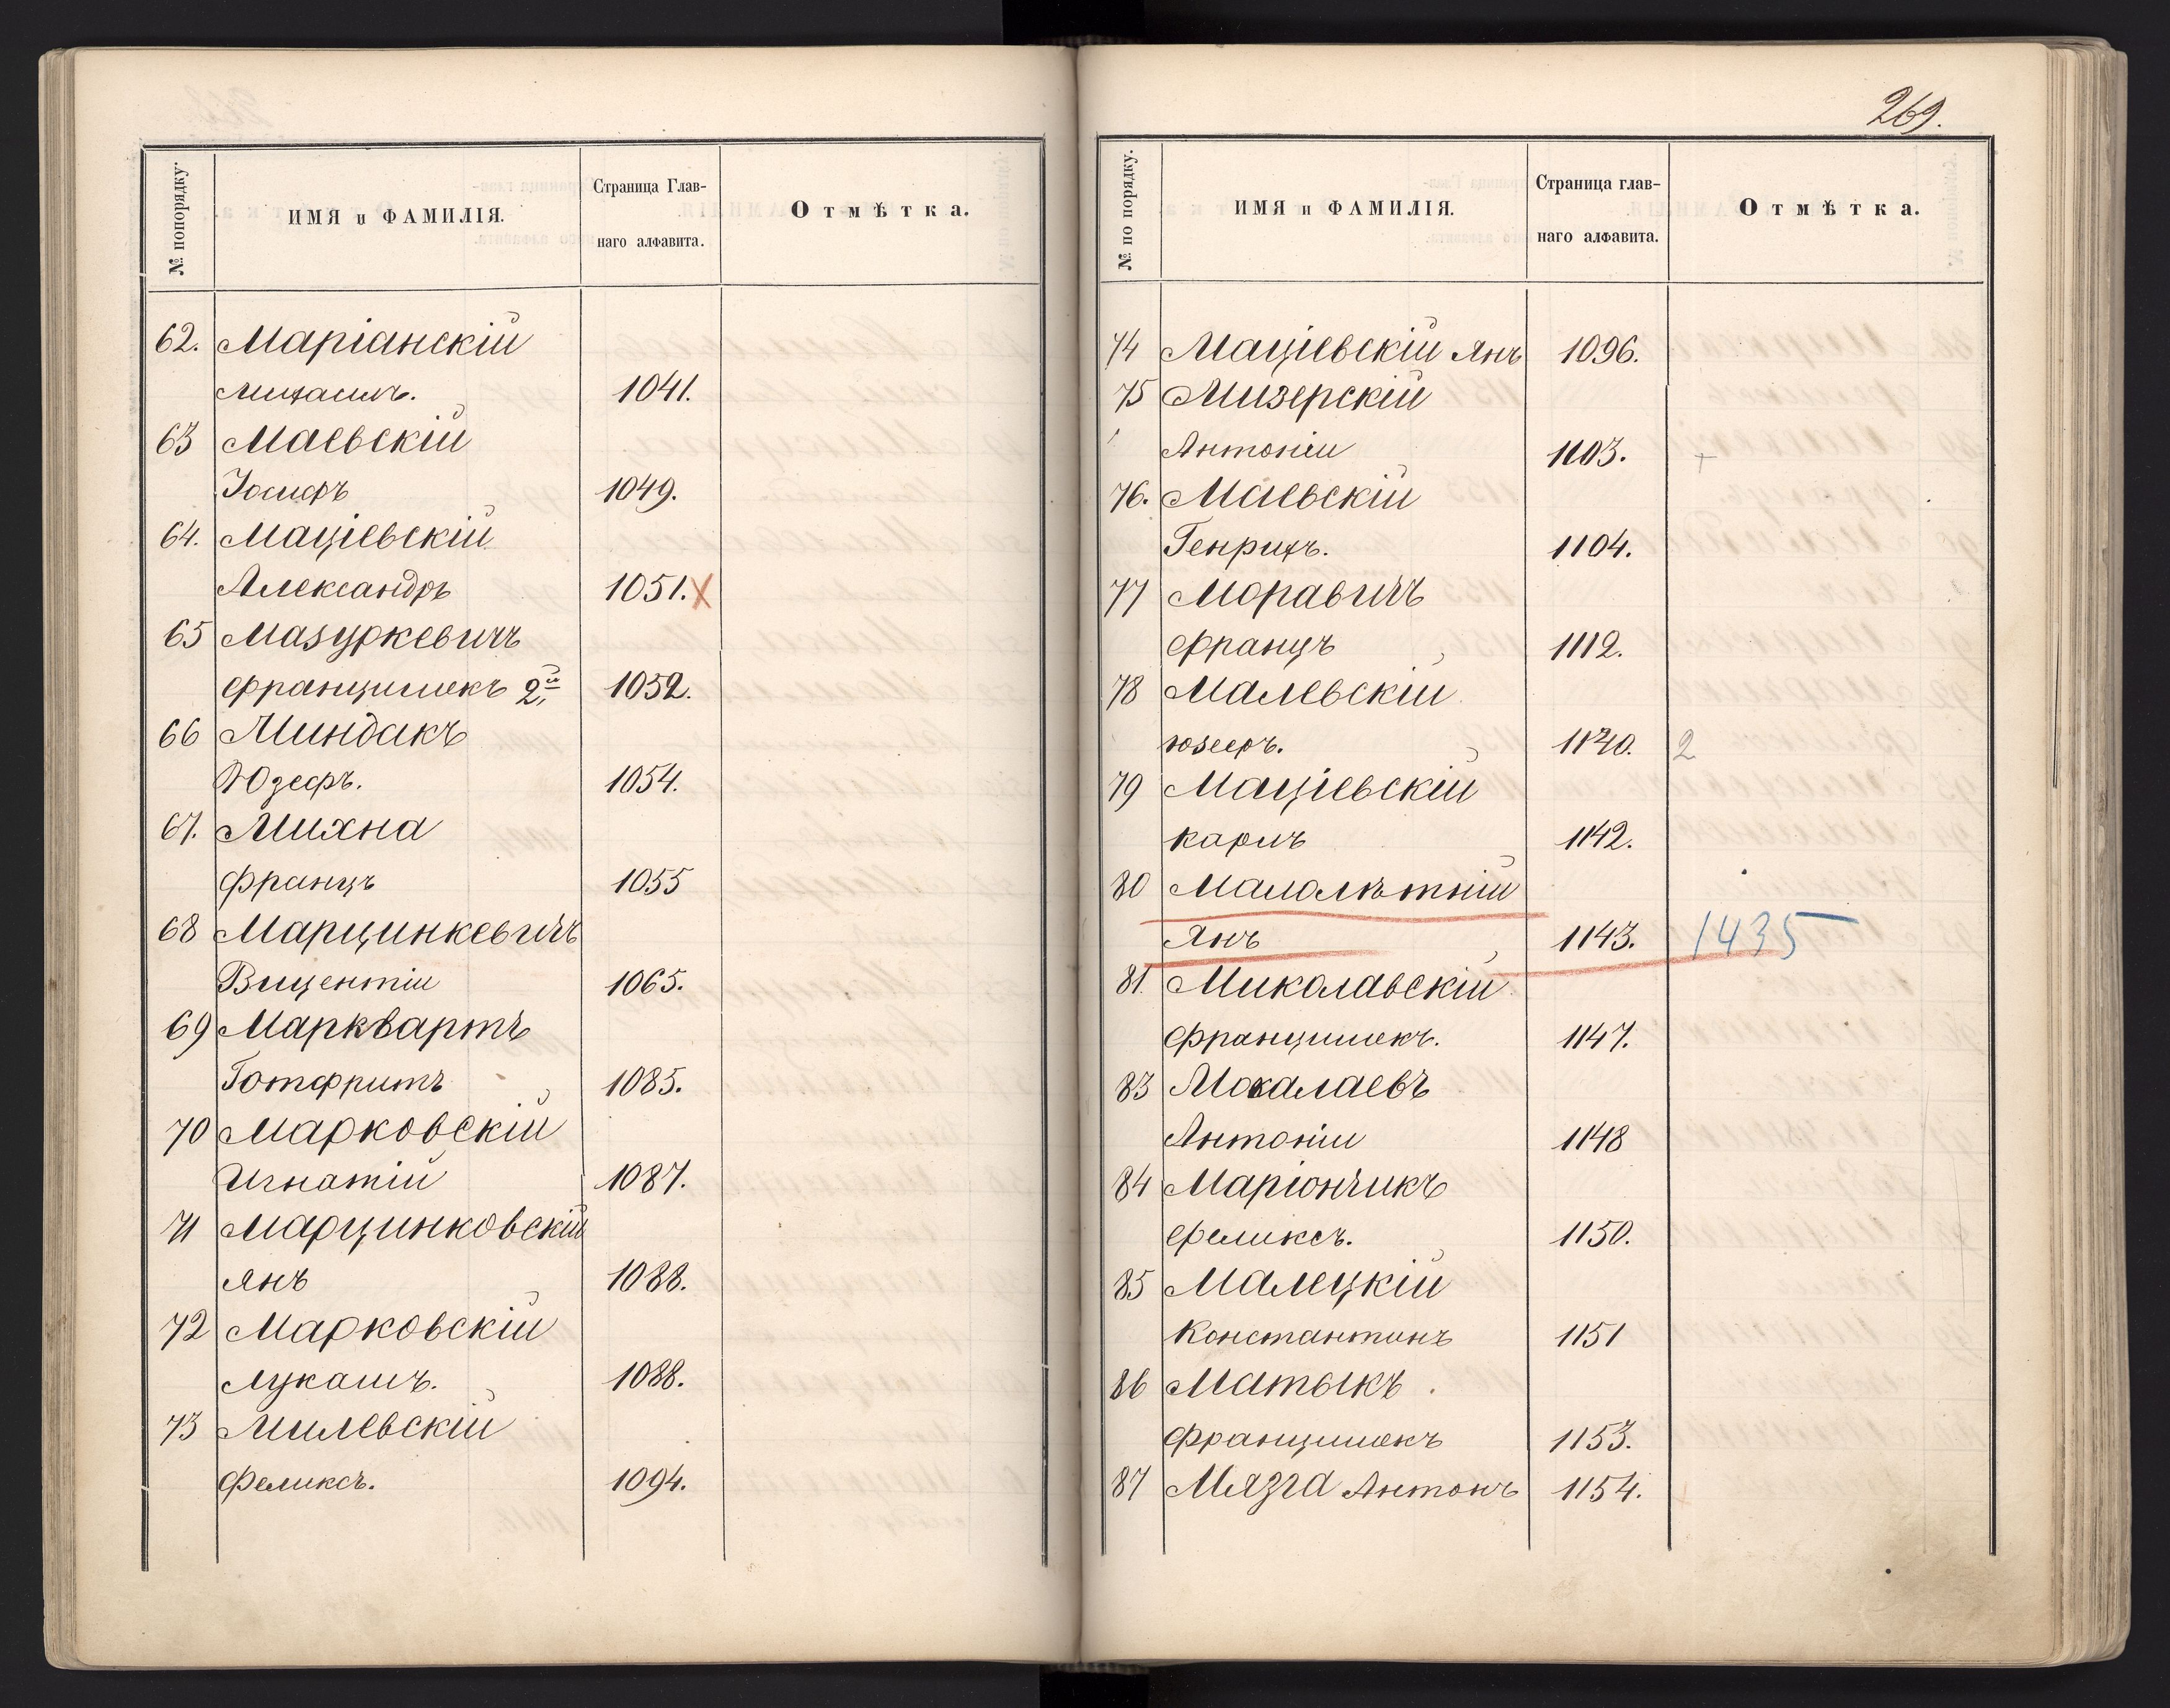 № попорядку.
ИМЯ и ФАМИЛІЯ.
Страница Глав-
наго алфавита.
Отмѣтка.
62. Маріанскій
Михаилъ. 1041.
63 Маевскій
Іосифъ 1049.
64. Маціевскій
Александръ 1051. X
65 Мазуркевичъ
Францишекъ 2й 1052.
66 Миндакъ
Юзефъ. 1054.
67. Михна
Францъ 1055
68 Марцинкевичъ
Вицентій 1065.
69 Марквартъ
Готфритъ 1085.
70 Марковскій
Игнатій 1087.
71 Марцинковскій
Янъ 1088.
72 Марковскій
Лукашъ. 1088.
73 Милевскій
Феликсъ. 1094.
269.
№ по порядку.
ИМЯ и ФАМИЛІЯ.
Страница глав-
наго алфавита.
Отмѣтка.
74 Маціевскій Янъ 1096.
75 Мизерскій
Антоній 1103. +
76. Маевскій
Генрихъ. 1104.
77 Моравичъ
Францъ 1112.
78 Малевскій
Юзефъ. 1140. 2
79 Маціевскій
Карлъ 1142.
80 Малолѣтній
Янъ 1143. 1435
81. Миколавскій
Францишекъ. 1147.
83 Мокалаевъ
Антоній 1148
84 Маріончикъ
Феликсъ. 1150.
85 Малецкій
Константинъ 1151
86 Матыкъ.
Францишекъ 1153.
87 Мязга Антонъ 1154.